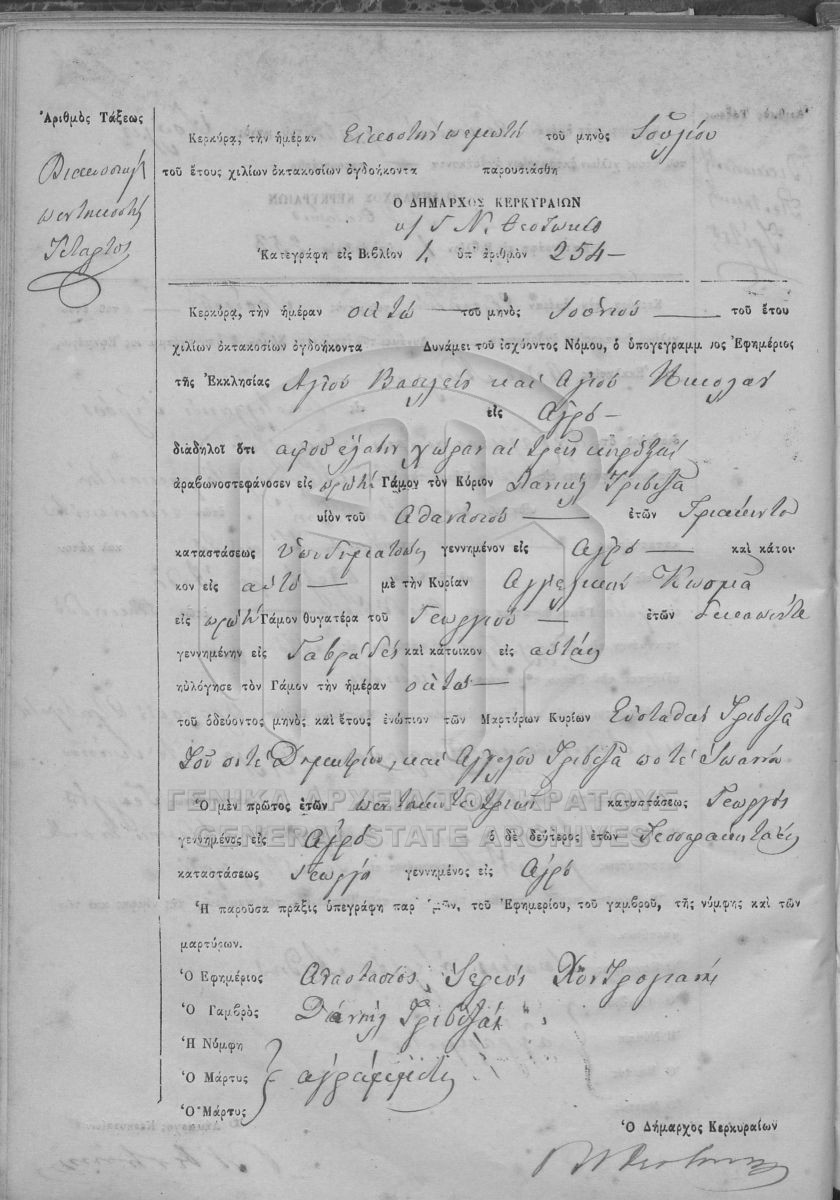 Ἀριθμὸς Τάξεως
Διακοσιοστὸς
πεντηκοστὸς
Τέταρτος
Κερκύρᾳ, τὴν ἡμέραν Εἰκοστὴν πέμπτη τοῦ μηνὸς Ἰουλίου
τοῦ ἔτους χιλίων ὀκτακοσίων ὀγδοήκοντα παρουσιάσθη
Ο ΔΗΜΑΡΧΟΣ ΚΕΡΚΥΡΑΙΩΝ
Ν. Θεοτόκης
Κατεγράφη εἰς Βιβλίον 1. ὑπ' ἀριθμὸν 254 —
Κερκύρᾳ, τὴν ἡμέραν οκτώ — τοῦ μηνὸς Ἰουνίου — τοῦ ἔτου
χιλίων ὀκτακοσίων ὀγδοήκοντα Δυνάμει τοῦ ἰσχύοντος Νόμου, ὁ ὑπογεγραμμ νος Ἐφημέριος
τῆς Ἐκκλησίας Αγίου Βασιλείου και Αγίου Νικολαου
εἰς Αγρό —
διαδηλοῖ ὅτι αφού έλαβον χώραν αι τρεις κηρύξεις
ἀραβωνοστεφάνοσεν εἰς πρώτον Γάμον τὸν Κύριον Δανιήλ Τριβιζά
υἱὸν τοῦ Αθανασίου — ἐτῶν Τριάκοντα
καταστάσεως υποδηματοποιός γεννημένον εἰς Αγρό — καὶ κάτοι-
κον εἰς αυτό — μὲ τὴν Κυρίαν Αγγελικήν Κοσμά
εἰς πρώτον Γάμον θυγατέρα τοῦ Γεωργίου — ἐτῶν δεκαπέντε
γεννημένην εἰς Γαβράδες καὶ κάτοικον εἰς αυτάς
ηὐλόγησε τὸν Γάμον τὴν ἡμέραν οκτώ —
τοῦ ὁδεύοντος μηνὸς καὶ ἔτους ἐνώπιον τῶν Μαρτύρων Κυρίων Ευσταθίου Τριβιζά
του ποτέ Δημητρίου, και Αγγελου Τριβιζά ποτέ Ιωάννου
ΓΕΝΙΚΑ ΑΡΧΕΙΑ ΤΟΥ ΚΡΑΤΟΥΣ
Ὁ μὲν πρῶτος ἐτῶν πεντήκοντα τριών καταστάσεως Γεωργός
GENERAL STATE ARCHIVES
γεννημένος εἰς Αγρό ὁ δὲ δεύτερος ἐτῶν Τεσσαράκοντα
καταστάσεως Γεωργό γεννημένος εἰς Αγρό
Ἡ παροῦσα πράξις ὑπεγράφη παρ' ἡμῶν, τοῦ Ἐφημερίου, τοῦ γαμβροῦ, τῆς νύμφης καὶ τῶν
μαρτύρων.
Ὁ Ἐφημέριος Αναστάσιος Ιερεύς Χονδρογιάννης
Ὁ Γαμβρὸς Δανιήλ Τριβιζάς
Ἡ Νύμφη
Ὁ Μάρτυς αγράμματοι
Ὁ Μάρτυς
Ὁ Δήμαρχος Κερκυραίων